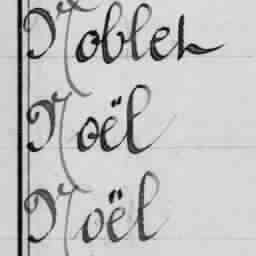 Noblet
Noël
Noël